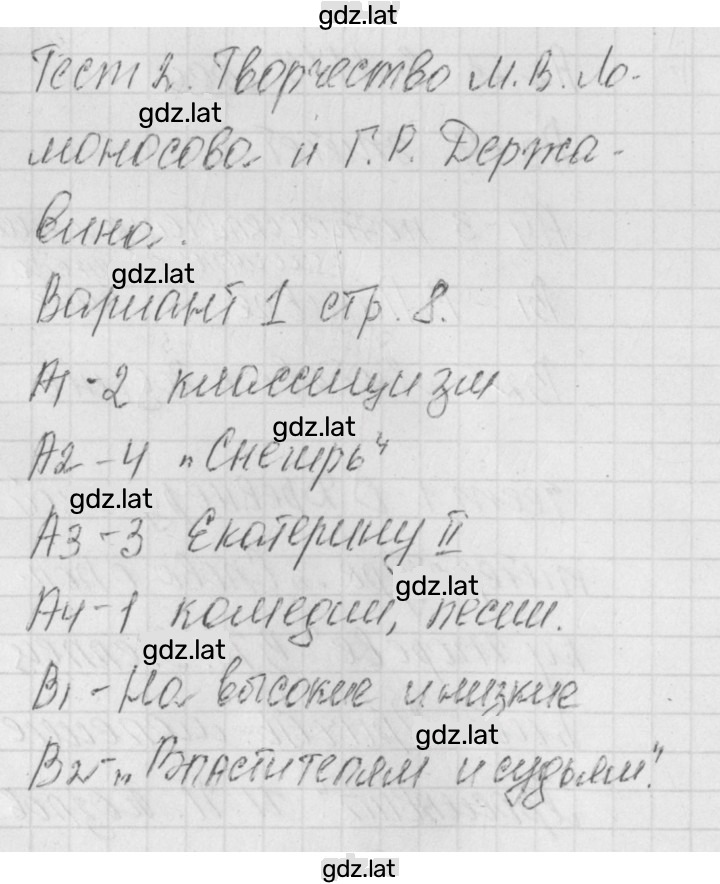 gdz.lat
Тест 2. Творчество М.В. Ло-
gdz.lat
моносова и Г.Р. Держа-
вина.
gdz.lat
Вариант 1 стр. 8.
А1-2 классицизм
gdz.lat
А2-4 „Снегирь"
gdz.lat
А3-3 Екатерину II
gdz.lat
А4-1 комедии, песни.
gdz.lat
В1-На высокие и низкие
gdz.lat
В2-„Властителям и судьям".
gdz.lat